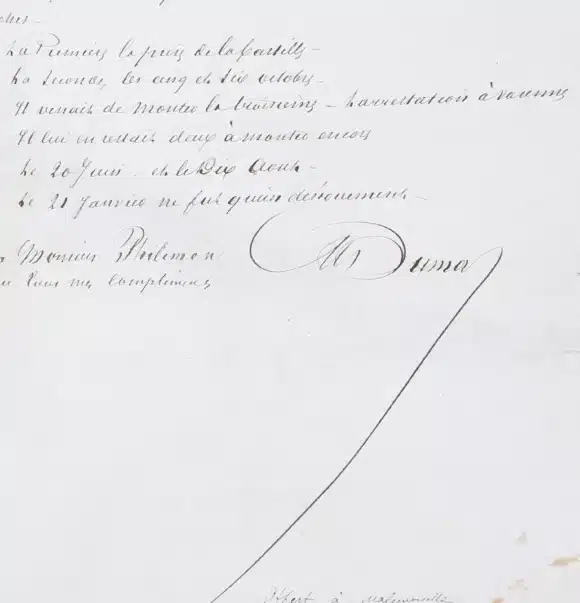 La Première la prise de la Bastille –
La Seconde, les cinq et six octobre –
Il venait de monter la troisième – L'arrestation à Varennes
Il lui en restait deux à monter encore
Le 20 Juin – et le Dix Aout –
Le 21 Janvier ne fut qu'un dénouement –
Monsieur Philémon
tous mes compliments
Alx Dumas
Offert à Mademoiselle